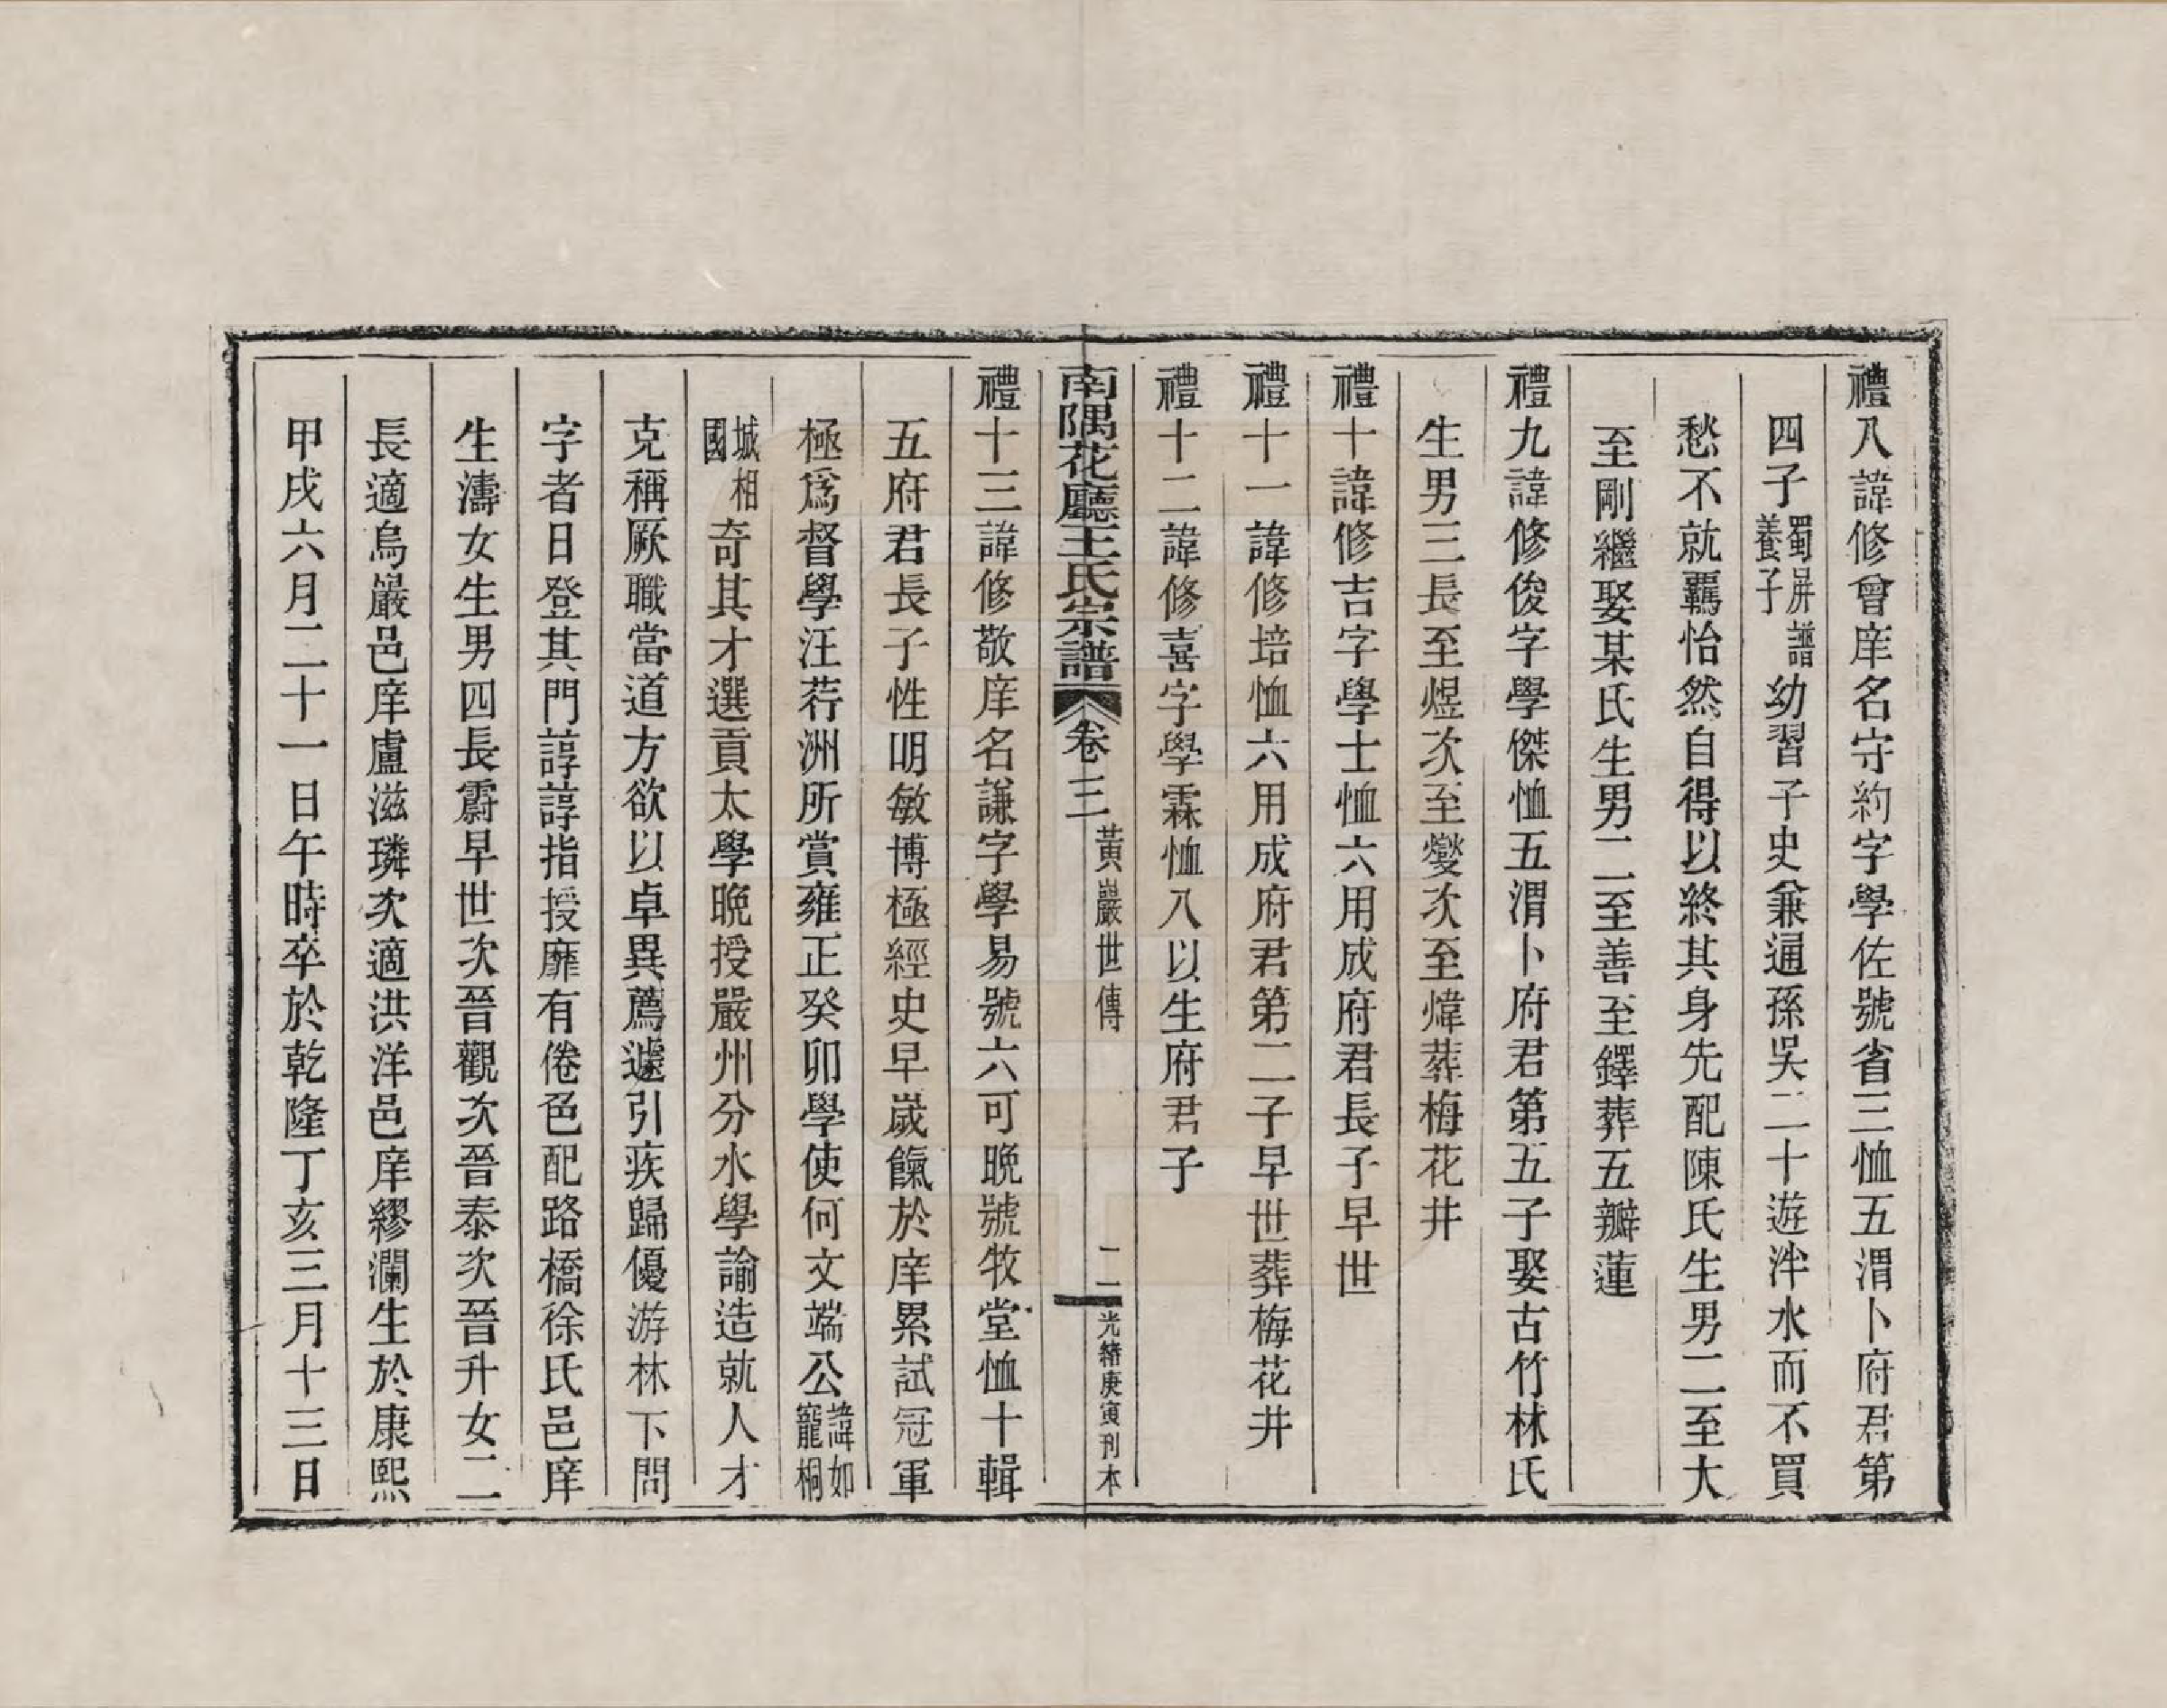 禮八諱修曾庠名守約字學佐號省三恤五渭卜府君第
四子蜀屏譜養子幼習子史兼通孫吳二十遊泮水而不買
愁不就羈怡然自得以終其身先配陳氏生男二至大
至剛繼娶某氏生男二至善至鐸葬五瓣蓮
禮九諱修俊字學傑恤五渭卜府君第五子娶古竹林氏
生男三長至煜次至燮次至煒葬梅花井
禮十諱修吉字學士恤六用成府君長子早世
禮十一諱修培恤六用成府君第二子早世葬梅花井
禮十二諱修喜字學霖恤八以生府君子
南隅花廳王氏宗譜 卷三 黃巖世傳 二 光緒庚寅刊本
禮十三諱修敬庠名謙字學易號六可晚號牧堂恤十輯
五府君長子性明敏博極經史早歲餼於庠累試冠軍
極爲督學汪荇洲所賞雍正癸卯學使何文端公諱如寵桐
城相國奇其才選貢太學晚授嚴州分水學諭造就人才
克稱厥職當道方欲以卓異薦遽引疾歸優游林下問
字者日登其門諄諄指授靡有倦色配路橋徐氏邑庠
生濤女生男四長霨早世次晉觀次晉泰次晉升女二
長適烏巖邑庠盧滋璘次適洪洋邑庠繆瀾生於康熙
甲戌六月二十一日午時卒於乾隆丁亥三月十三日